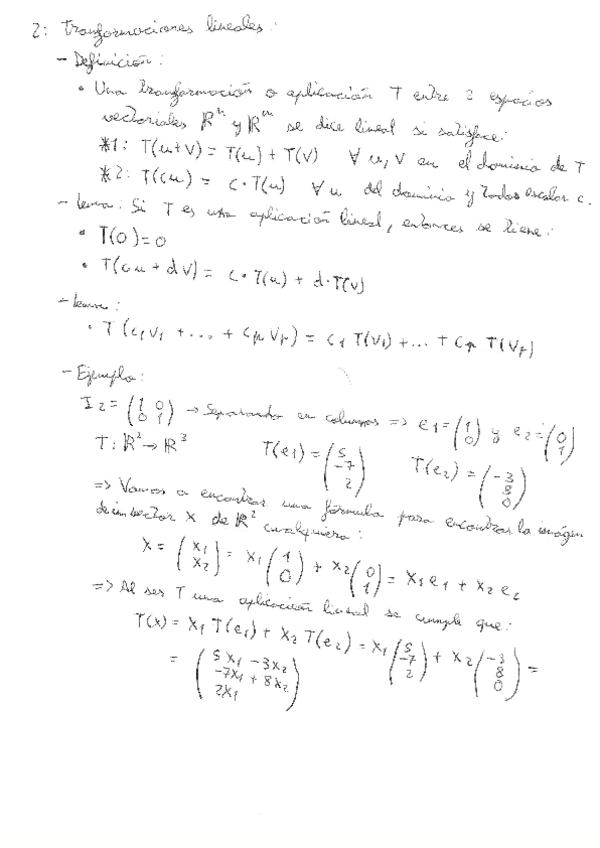 2: Transformaciones lineales:
- Definición:
• Una transformación o aplicación T entre 2 espacios
vectoriales ℝⁿ y ℝᵐ se dice lineal si satisface:
*1: T(u+v) = T(u) + T(v) ∀ u, v en el dominio de T
*2: T(cu) = c·T(u) ∀ u del dominio y todos escalar c.
- Lema: Si T es una aplicación lineal, entonces se tiene:
• T(0) = 0
• T(cu + dv) = c·T(u) + d·T(v)
- Lema:
• T(c₁v₁ + ... + cₚvₚ) = c₁ T(v₁) + ... + cₚ T(vₚ)
- Ejemplo:
I₂ = (1 0; 0 1) → Separando en columnas => e₁ = (1; 0) y e₂ = (0; 1)
T: ℝ² → ℝ³ T(e₁) = (5; -7; 2) T(e₂) = (-3; 8; 0)
=> Vamos a encontrar una fórmula para encontrar la imágen
de un vector x de ℝ² cualquiera:
x = (x₁; x₂) = x₁ (1; 0) + x₂ (0; 1) = x₁e₁ + x₂e₂
=> Al ser T una aplicación lineal se cumple que:
T(x) = x₁ T(e₁) + x₂ T(e₂) = x₁ (5; -7; 2) + x₂ (-3; 8; 0) =
= (5x₁ - 3x₂; -7x₁ + 8x₂; 2x₁)